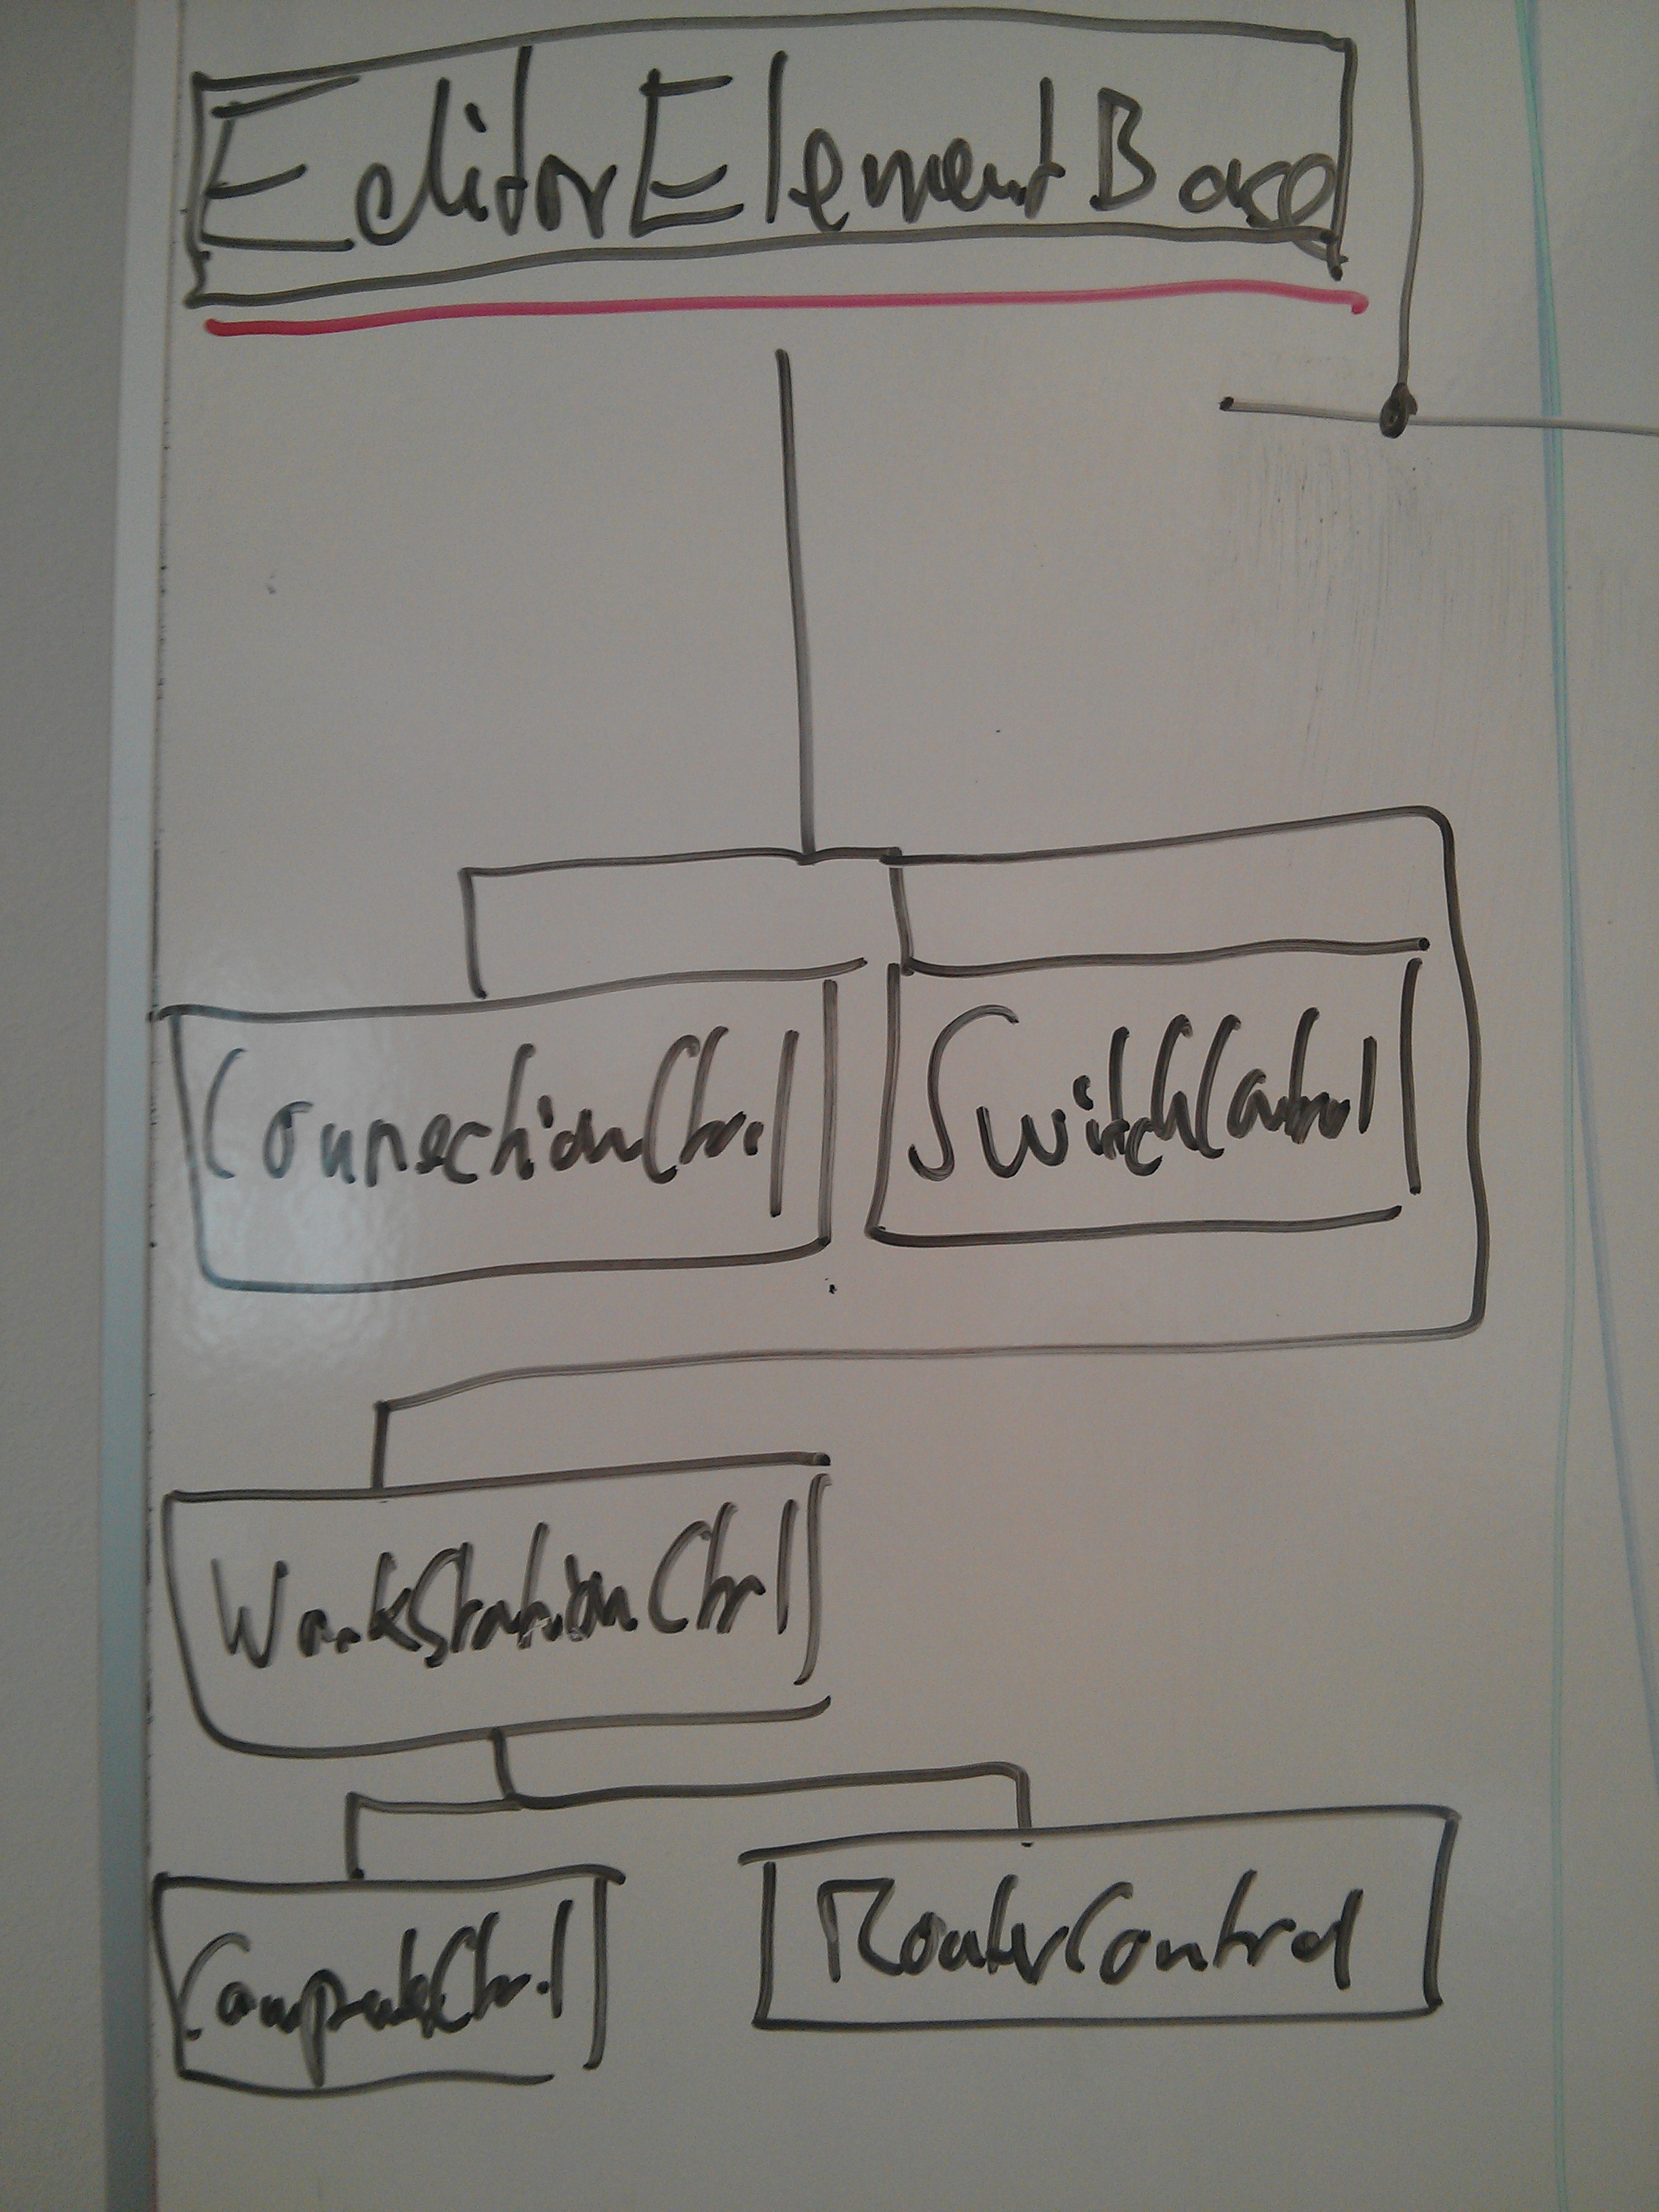 EditorElementBase
ConnectionCtrl
SwitchControl
WorkStationCtrl
ComputerCtrl
RouterControl